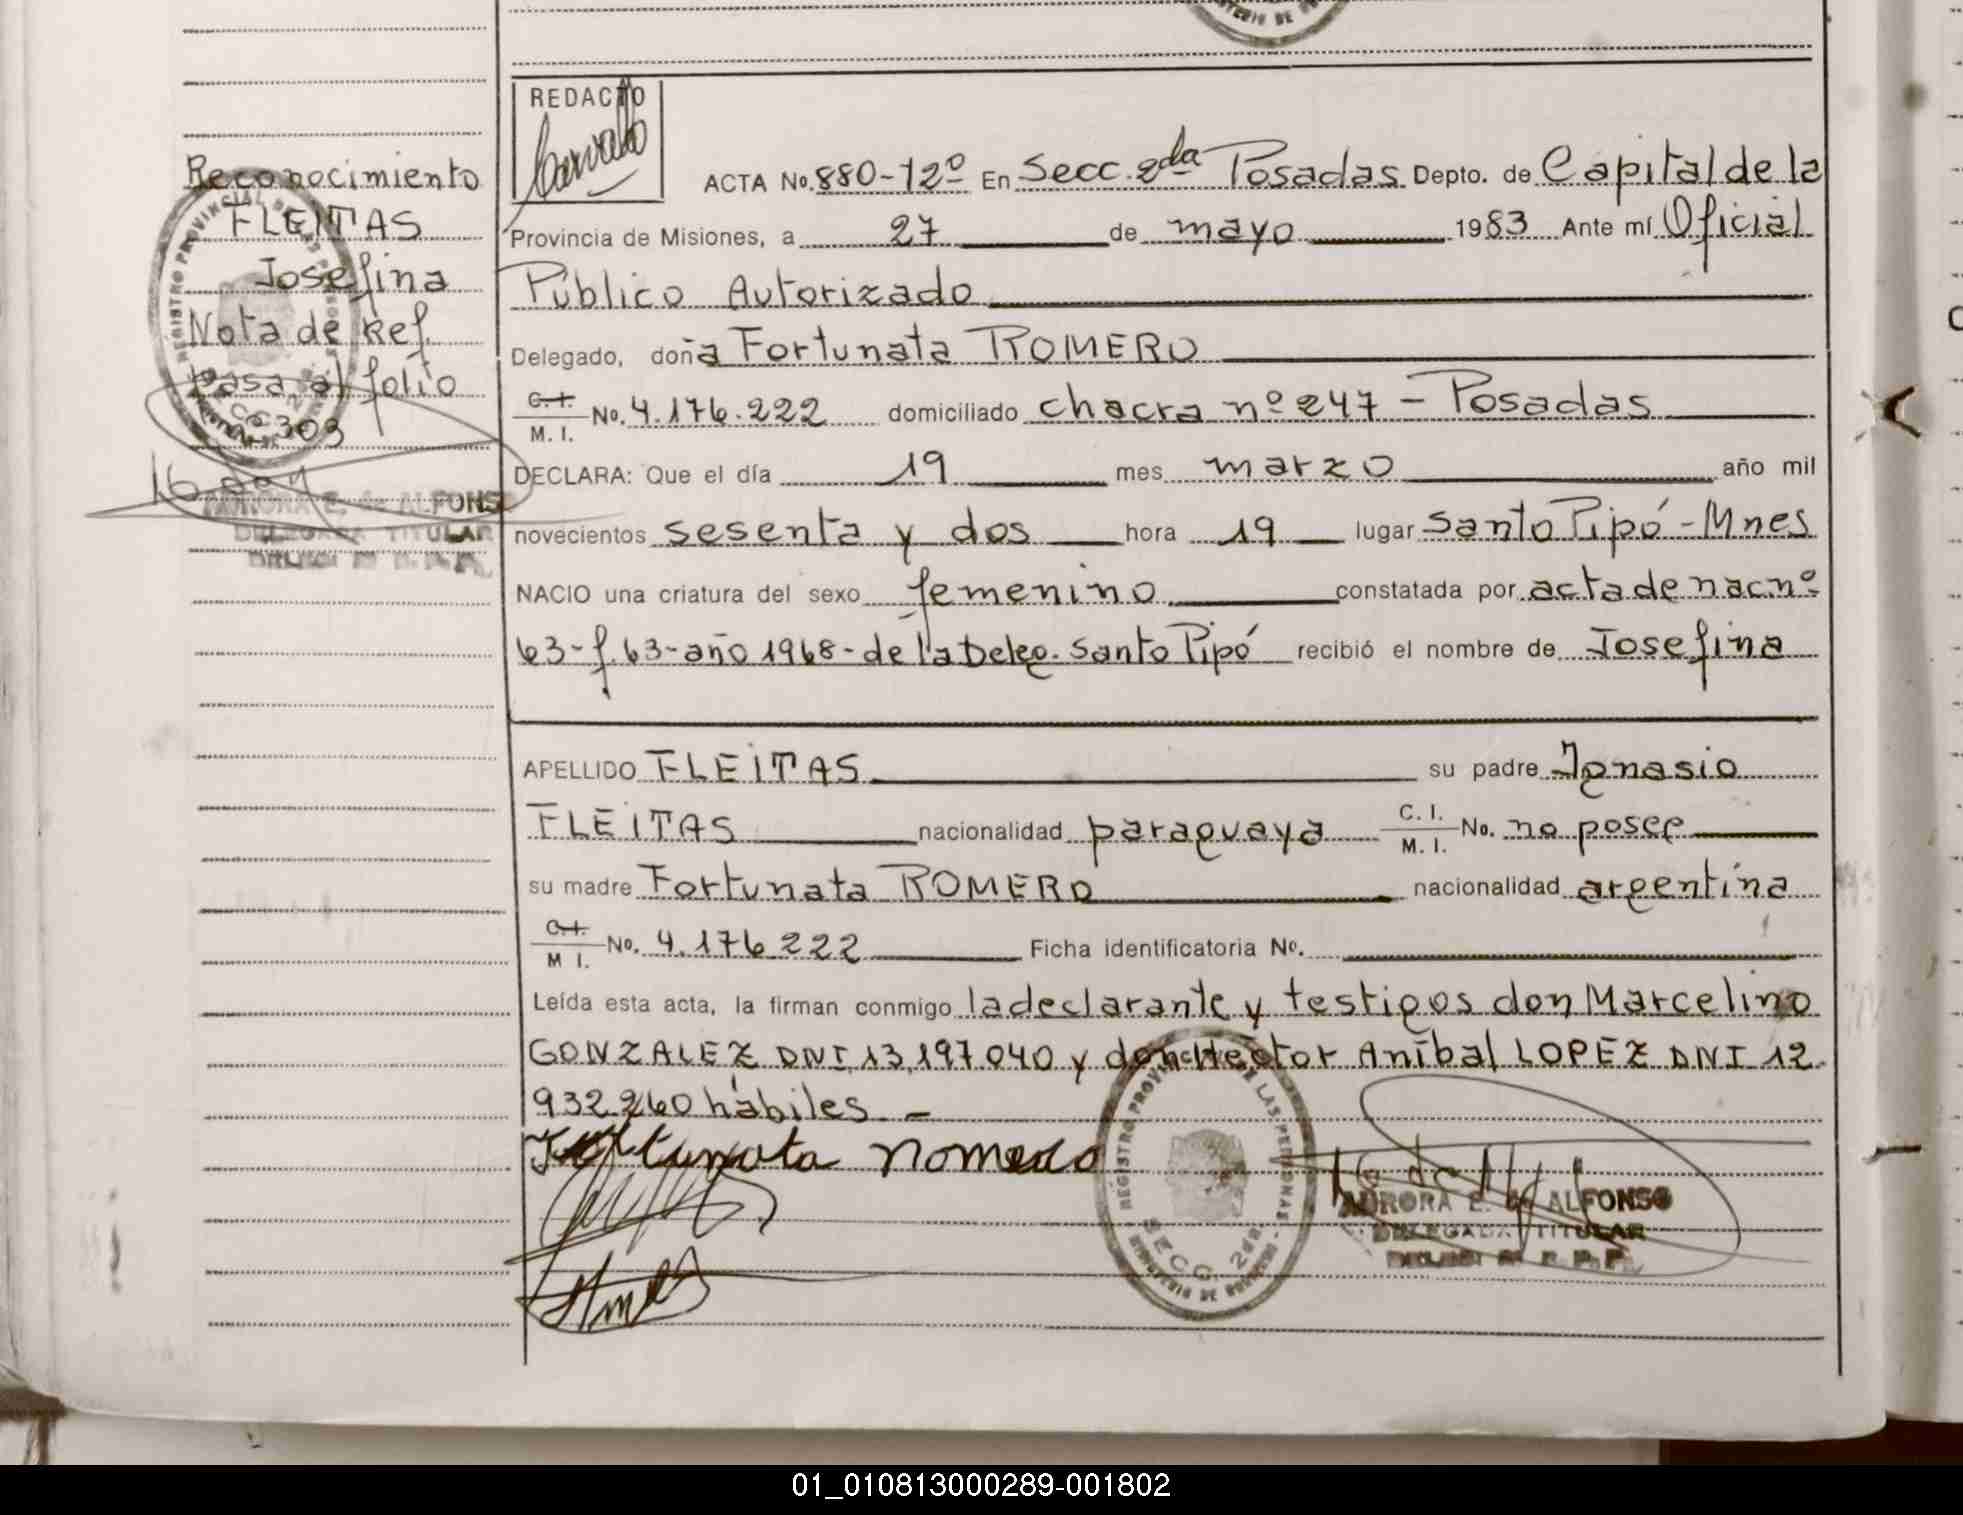 MINISTERIO DE
REDACTO
Carvallo
Reconocimiento
FLEITAS
Josefina
Nota de Ref.
pasa al folio
nº 303
AURORA E. de ALFONSO
DELEGADA TITULAR
ACTA No. 880-12º En Secc. 2da Posadas Depto. de Capital de la
Provincia de Misiones, a 27 de mayo 1983 Ante mí Oficial
Público Autorizado
Delegado, doña Fortunata ROMERO
C. I. M. I. No. 4.176.222 domiciliado chacra nº 247 - Posadas
DECLARA: Que el día 19 mes marzo año mil
novecientos sesenta y dos hora 19 lugar Santo Pipó - Mnes
NACIO una criatura del sexo femenino constatada por acta de nac nº
63 - f. 63 - año 1968 - de la Deleg. Santo Pipó recibió el nombre de Josefina
APELLIDO FLEITAS su padre Ignasio
FLEITAS nacionalidad paraguaya C. I. M. I. No. no posee
su madre Fortunata ROMERO nacionalidad argentina
C. I. M I. No. 4.176.222 Ficha identificatoria No.
Leída esta acta, la firman conmigo la declarante y testigos don Marcelino
GONZALEZ DNI 13.197.040 y don Hector Aníbal LOPEZ DNI 12.
932.260 hábiles. -
Fortunata romero
REGISTRO PROVINCIAL DE LAS PERSONAS
SECC. 2da
MINISTERIO DE GOBIERNO
AURORA E. de ALFONSO
DELEGADA TITULAR
01_010813000289-001802